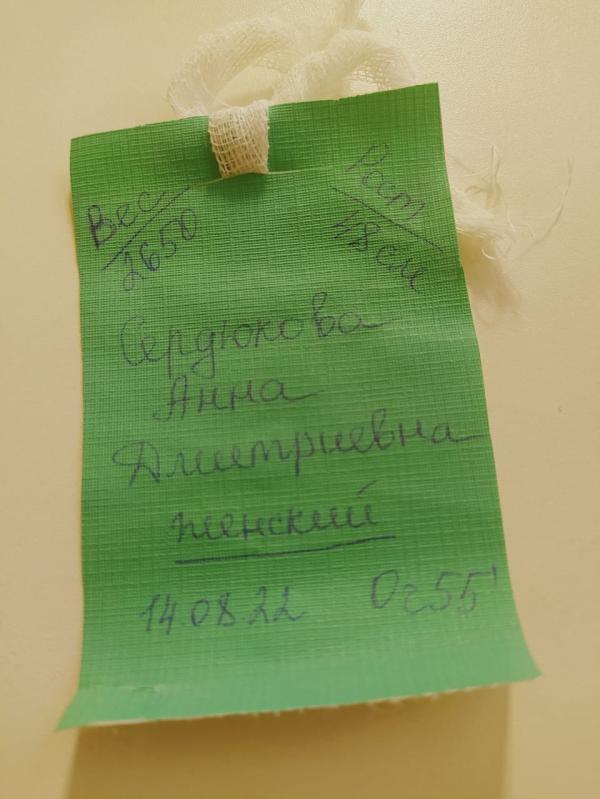 Вес
2650
Рост
48 см
Сердюкова
Анна
Дмитриевна
женский
14.08.22 0ч 55'